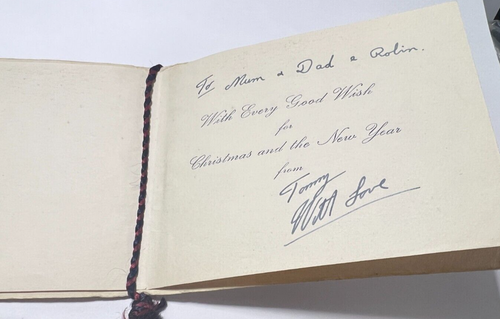 To Mum & Dad & Robin.
With Every Good Wish
for
Christmas and the New Year
from
Tommy
With Love